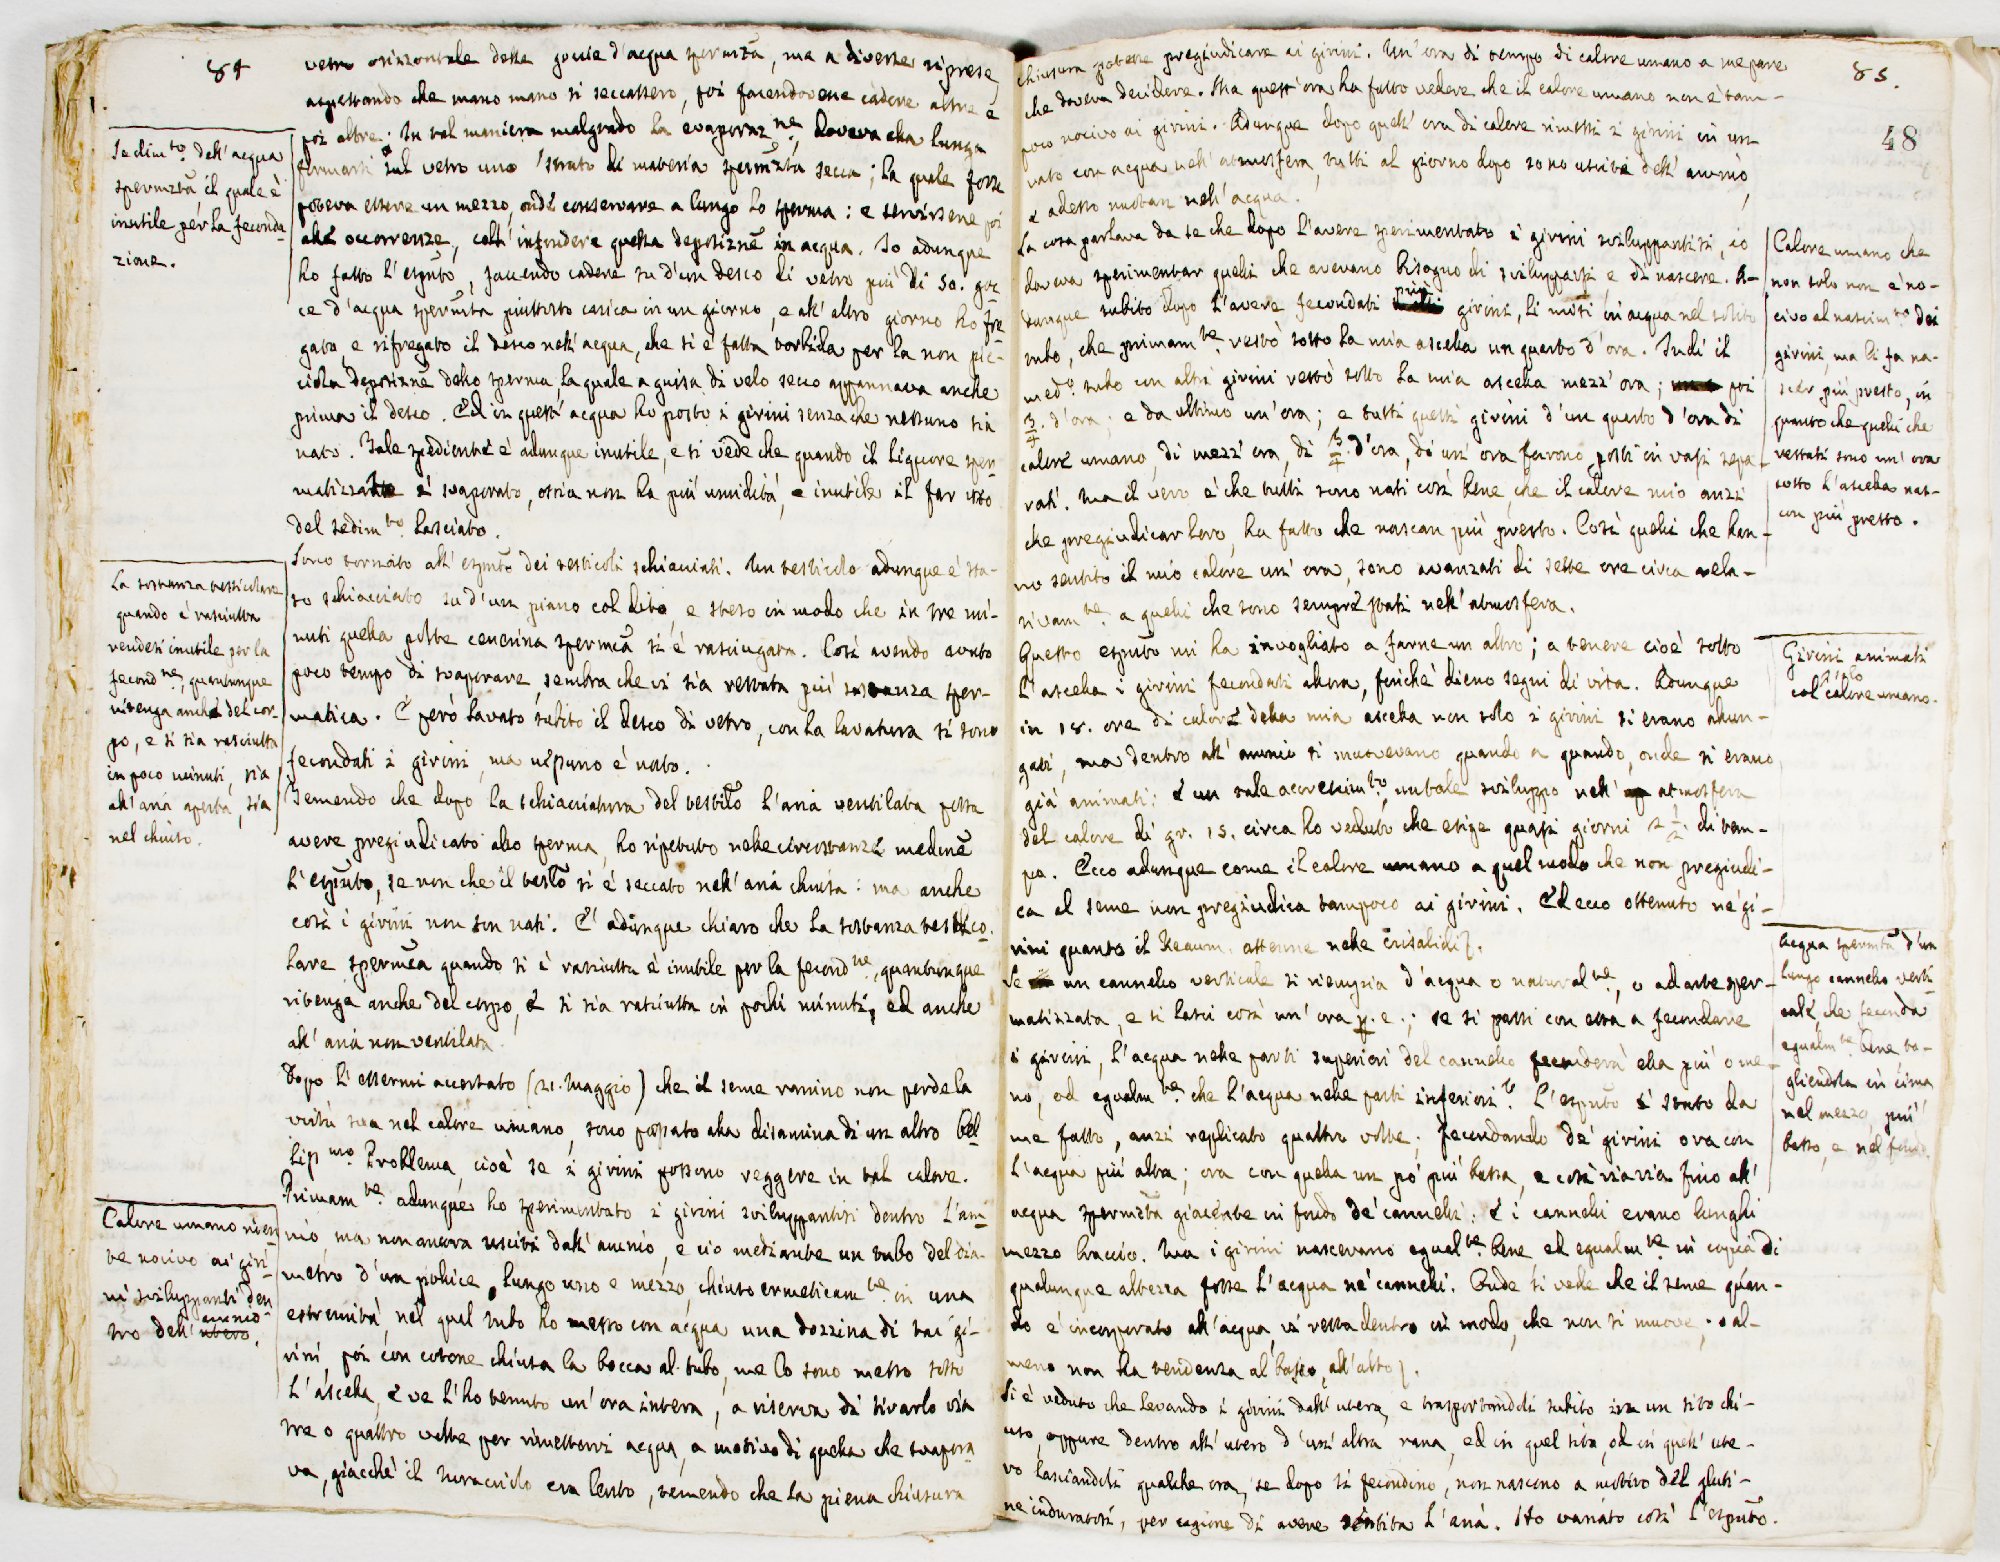 84
vetro orizzontale delle goccie d'acqua spermata, ma a diverse riprese
aspettando che mano mano si seccassero, poi facendovene cadere altre e
poi altre. In tal maniera malgrado la evaporazne, doveva alla lunga
formarsi sul vetro uno strato di materia spermata secca; la quale forse
poteva essere un mezzo, onde conservare a lungo lo sperma: e servirsene poi
alle occorrenze, coll'infondere questa deposizne in acqua. Io adunque
ho fatto l'espmto, facendo cadere su d'un desco di vetro più di 50. goc-
ce d'acqua spermata piuttosto carica in un giorno, e all'altro giorno ho fre
gato, e rifregato il desco nell'acqua, che si è fatta torbida per la non pic-
ciola deposizne dello sperma, la quale a guisa di velo secco appannava anche
prima il desco. Ed in quest'acqua ho posto i girini senza che nessuno sia
nato. Tale spediente è adunque inutile, e si vede che quando il liquore sper
matizzante è svaporato, ossia non ha più umidità, è inutile il far uso
del sedimto lasciato.
Sono tornato all'espmto dei testicoli schiacciati. Un testicolo adunque è sta-
to schiacciato su d'un piano col dito, e steso in modo che in tre mi-
nuti quella poltte cenerina spermca si è rasciugata. Così avendo avuto
poco tempo di svaporare, sembra che vi sia restata più sostanza sper-
matica. E però lavato subito il desco di vetro, con la lavatura si sono
fecondati i girini, ma nessuno è nato.
Temendo che dopo la schiacciatura del testlo l'aria ventilata possa
avere pregiudicato allo sperma, ho ripetuto nelle circostanze medme
l'espmto, se non che il testlo si è seccato nell'aria chiusa: ma anche
così i girini non son nati. E' adunque chiaro che la sostanza testico-
lare spermca quando si è rasciutta è inutile per la fecondne, quantunque
ritenga anche del corpo, e si sia rasciutta in pochi minuti, ed anche
all'aria non ventilata.
Dopo l'essermi accertato (21. Maggio) che il seme ranino non perde la
virtù sua nel calore umano, sono passato alla disamina di un altro bel
lissmo Problema, cioè se i girini possono reggere in tal calore.
Primamte adunque ho sperimentato i girini sviluppantisi dentro l'am-
nio ma non ancora usciti dall'amnio, e ciò mediante un tubo del dia-
metro d'un pollice, lungo uno e mezzo, chiuso ermeticamte in una
estremità, nel qual tubo ho messo con acqua una dozzina di tai gi-
rini, poi con cotone chiusa la bocca al tubo, me lo sono messo sotto
l'ascella, e ve l'ho tenuto un'ora intera, a riserva di tirarlo via
tre o quattro volte per rimettervi acqua, a motivo di quella che svapora-
va, giacchè il turacciolo era lento, temendo che la piena chiusura
Sedimto dell'acqua
spermata il quale è
inutile per la feconda
zione.
La sostanza testicolare
quando è rasciutta
rendesi inutile per la
fecondne, quantunque
ritenga anche del cor-
po, e si sia rasciutta
in poco minuti, sia
all'aria aperta, sia
nel chiuso.
Calore umano nien
te nocivo ai giri-
ni sviluppantisi den
tro dell' amnio
utero.
85.
48
chiusura potesse pregiudicare ai girini. Un'ora di tempo di calore umano a me pare
che doveva decidere. Ma quest'ora ha fatto vedere che il calore umano non è tam-
poco nocivo ai girini. Adunque dopo quell'ora di calore rimessi i girini in un
vaso con acqua nell'atmosfera, tutti al giorno dopo sono usciti dell'amnio,
e adesso nuotan nell'acqua.
La cosa parlava da se che dopo l'avere sperimentato i girini sviluppantisi, io
doveva sperimentar quelli che avevano bisogno di svilupparsi e di nascere. A-
dunque subito dopo l'avere fecondati più girini, li misi in acqua nel solito
tubo, che primamte restò sotto la mia ascella un quarto d'ora. Indi il
medo tubo con altri girini restò sotto la mia ascella mezz'ora; poi
3/4. d'ora; e da ultimo un'ora; e tutti questi girini d'un quarto d'ora di
calore umano, di mezz'ora, di 3/4 d'ora, di un'ora furono posti in vasi sepa
rati. Ma il vero è che tutti sono nati così bene, che il calore mio anzi
che pregiudicar loro, ha fatto che nascan più presto. Così quelli che han-
no sentito il mio calore un'ora, sono avanzati di sette ore circa rela-
tivamte a quelli che sono sempre stati nell'atmosfera.
Questo espmto mi ha invogliato a farne un altro; a tenere cioè sotto
l'ascella i girini fecondati allora, finchè dieno segni di vita. Adunque
in 18. ore di calore della mia ascella non solo i girini si erano allun-
gati, ma dentro all'amnio si muovevano quando a quando, onde si erano
già animati: e un tale accrescimto, un tale sviluppo nell' atmosfera
del calore di gr. 15. circa ho veduto che esige quasi giorni 2 1/2. di tem-
po. Ecco adunque come il calore umano a quel modo che non pregiudi-
ca al seme non pregiudica tampoco ai girini. Ed ecco ottenuto ne' gi-
rini quanto il Reaum. ottenne nelle crisalidi.
Se un cannello verticale si riempia d'acqua o naturalte, o ad arte sper-
matizzata, e si lasci così un'ora p. e.; se si passi con essa a fecondare
i girini, l'acqua nelle parti superiori del cannello feconderà ella più o me-
no, od egualmte che l'acqua nelle parti inferiori? L'espmto è stato da
me fatto, anzi replicato quattro volte, fecondando de' girini ora con
l'acqua più alta; ora con quella un pò più bassa, e così via via fino all'
acqua spermata giacente in fondo de' cannelli. E i cannelli erano lunghi
mezzo braccio. Ma i girini nascevano egualte bene ed egualmte in copia di
qualunque altezza fosse l'acqua ne' cannelli. Onde si vede che il seme quan-
do è incorporato all'acqua, vi resta dentro in modo, che non si muove; o al-
meno non ha tendenza al basso, all'alto.
Si è veduto che levando i girini dall'utero, e trasportandoli subito in un sito chi-
uso, oppure dentro all'utero d'un'altra rana, ed in quel sito, od in quell'ute-
ro lasciandoli qualche ora, se dopo si fecondino, non nascono a motivo del gluti-
ne induratosi, per cagione di avere sentita l'aria. Ho variato così l'espmto.
Calore umano che
non solo non è no-
civo al nascimto dei
girini, ma li fa na-
scer più presto, in
quanto che quelli che
restati sono un'ora
sotto l'ascella nas-
con più presto.
Girini animati
col solo calore umano.
Acqua spermata d'un
lungo cannello verti-
cale, che feconda
egualmte bene to-
gliendola in cima
nel mezzo, più
basso, e nel fondo.